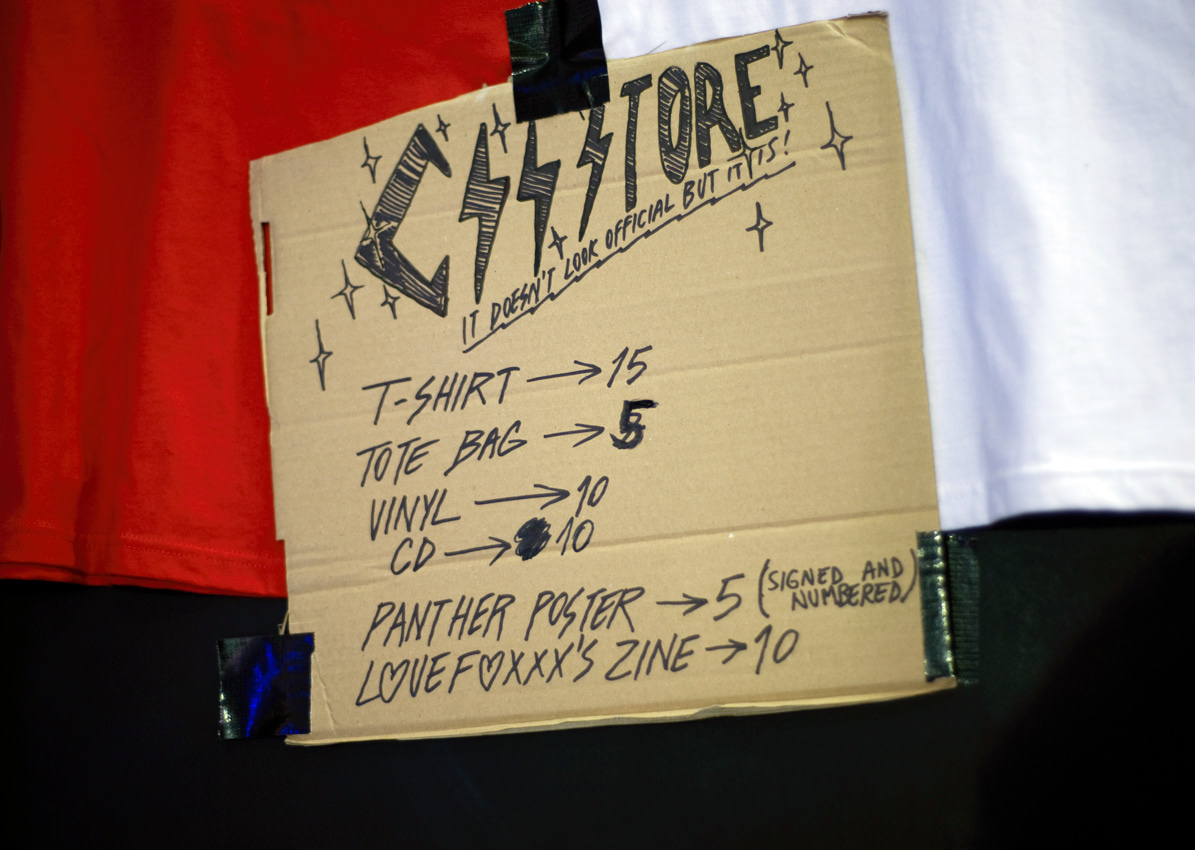 CSS STORE
IT DOESN'T LOOK OFFICIAL BUT IT IS!
T-SHIRT → 15
TOTE BAG → 5
VINYL → 10
CD → 10
PANTHER POSTER → 5 (SIGNED AND NUMBERED)
L♡VEF♡XXX'S ZINE → 10